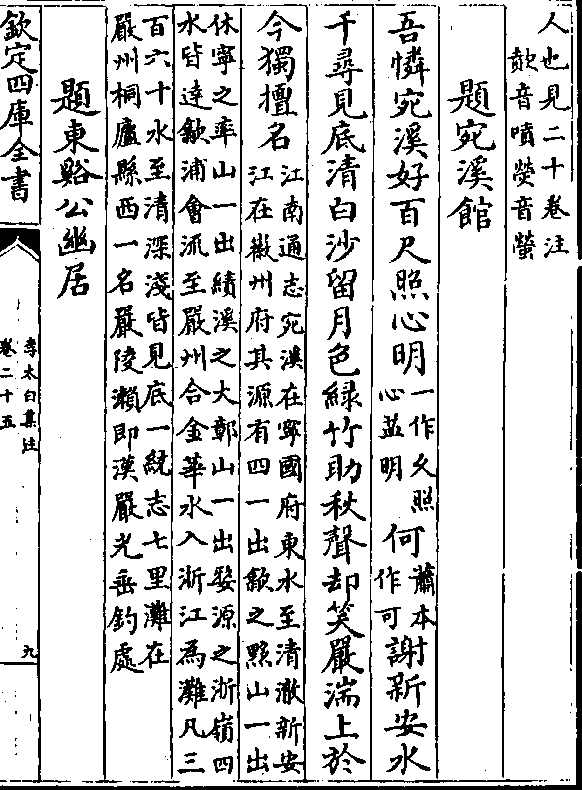 人也見二十卷注
歕音噴熒音螢
題宛溪館
吾憐宛溪好百尺照心明一作久照心益明何蕭本作可謝新安水
千尋見底清白沙留月色綠竹助秋聲却笑嚴湍上於
今獨擅名江南通志宛溪在寧國府東水至清澈新安
江在徽州府其源有四一出歙之黟山一出
休寧之率山一出績溪之大鄣山一出婺源之浙嶺四
水皆達歙浦會流至嚴州合金華水入浙江為灘凡三
百六十水至清深淺皆見底一統志七里灘在
嚴州桐廬縣西一名嚴陵瀨即漢嚴光垂釣處
題東谿公幽居
欽定四庫全書
李太白集注
卷二十五
九